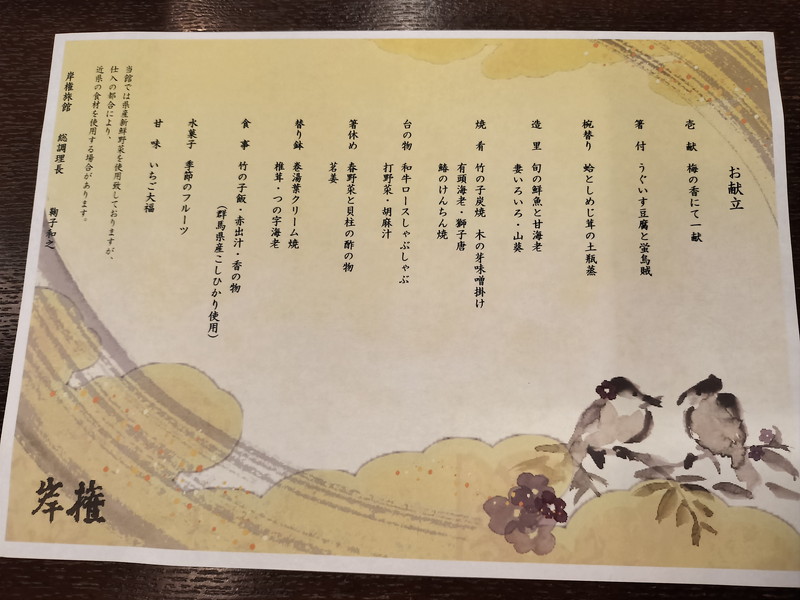 お献立
壱 献 梅の香にて一献
箸 付 うぐいす豆腐と蛍烏賊
椀替り 蛤としめじ茸の土瓶蒸
造 里 旬の鮮魚と甘海老
妻いろいろ・山葵
焼 肴 竹の子炭焼 木の芽味噌掛け
有頭海老・獅子唐
鰆のけんちん焼
台の物 和牛ロースしゃぶしゃぶ
打野菜・胡麻汁
箸休め 春野菜と貝柱の酢の物
茗姜
替り鉢 巻湯葉クリーム焼
椎茸・つの字海老
食 事 竹の子飯・赤出汁・香の物
（群馬県産こしひかり使用）
水菓子 季節のフルーツ
甘 味 いちご大福
当館では県産新鮮野菜を使用致しておりますが、
仕入の都合により、
近県の食材を使用する場合があります。
岸権旅館 総調理長 鞠子和之
岸権